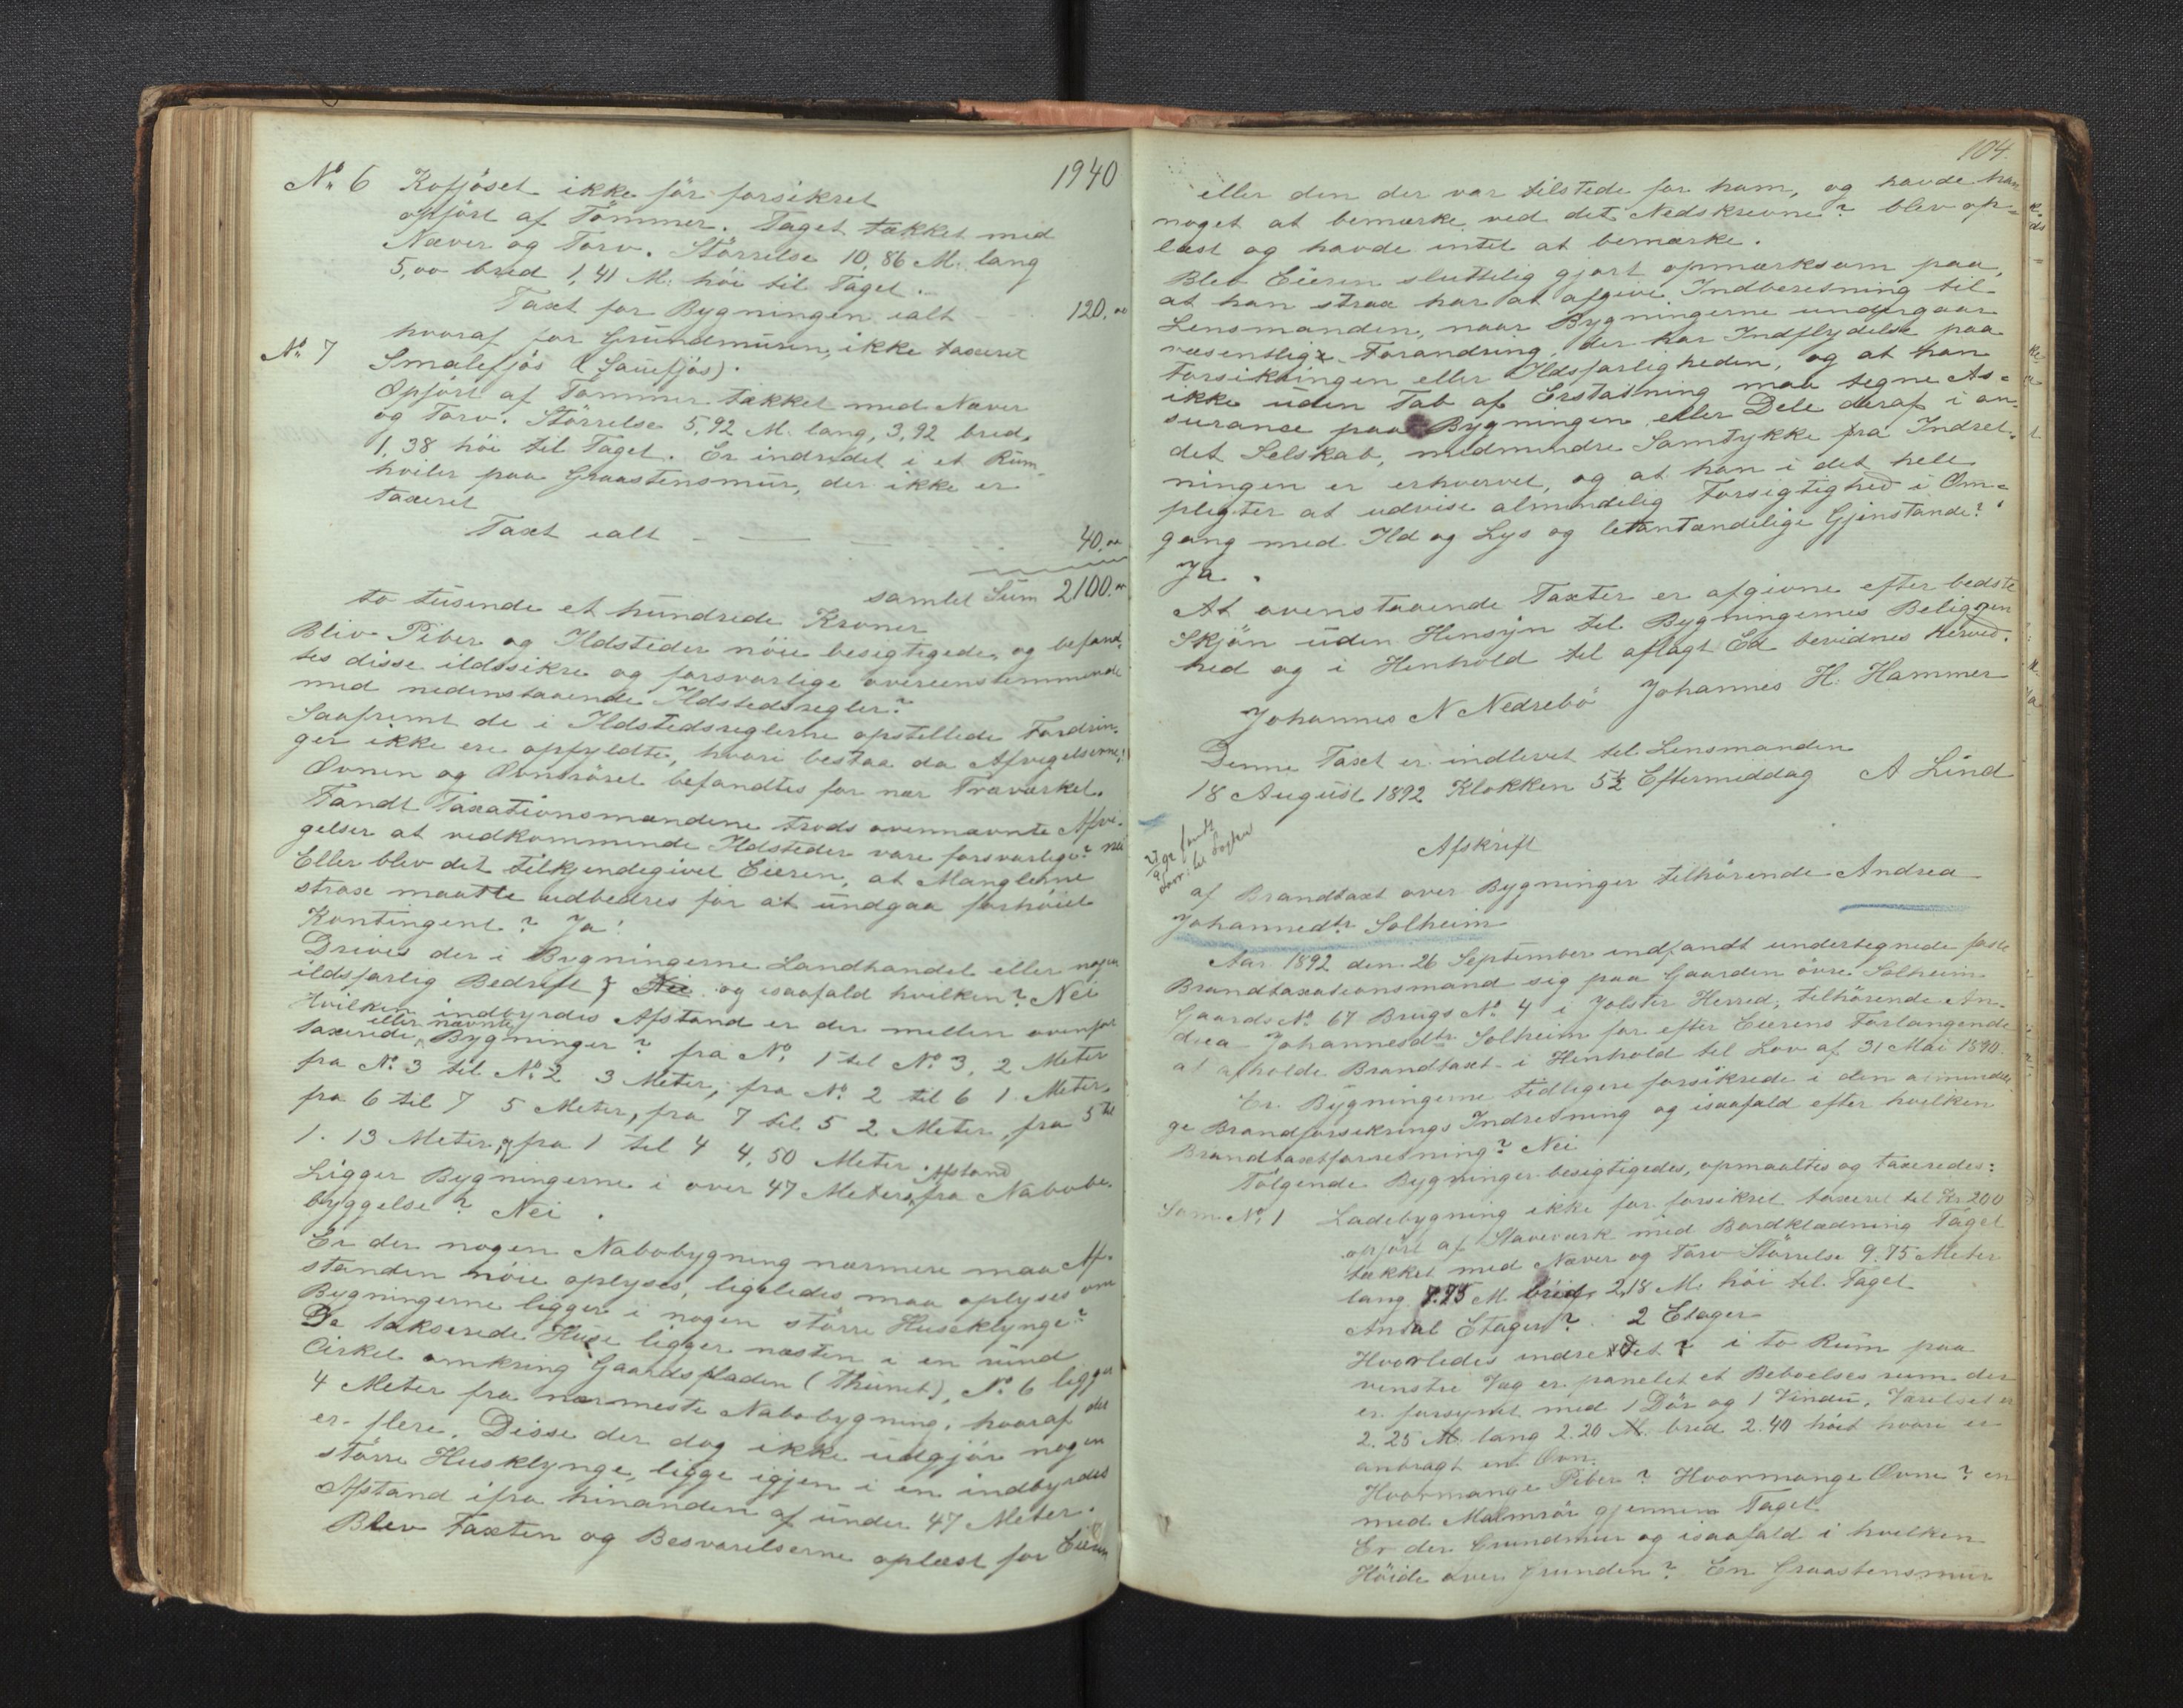 1940
No 6 Kofjöset ikke för forsikret
opfört af Tömmer. Taget tækket med
Næver og Torv. Störrelse 10,86 M. lang
5,00 bred 1,41 M. höi til Taget.
Taxt for Bygningen ialt - - - 120.00
hvoraf for Grundmuren, ikke taxeret
No 7 Smalefjös (Sauefjös).
Opfört af Tömmer tækket med Næver
og Torv. Störrelse 5,92 M. lang, 3,92 bred,
1,38 höi til Taget. Er indredet i et Rum
hviler paa Graastensmur, der ikke er
taxeret
Taxt ialt - - - 40.00
samlet Sum 2100.00
to tusende et hundrede Kroner
Blev Piber og Ildsteder nöie besigtigede, og befand-
tes disse ildssikre og forsvarlige overeenstemmende
med nedenstaaende Ildstedsregler?
Saafremt de i Ildstedsreglerne opstillede Fordrin-
ger ikke ere opfyldte, hvori bestaa da Afvigelserne?
Ovnen og Ovnsröret befandtes for nær Træværket.
Fandt Taxationsmændene trods ovennævnte Afvi-
gelser at vedkommende Ildsteder vare forsvarlige? nei
Eller blev det tilkjendegivet Eieren, at Manglerne
straxe maatte udbedres for at undgaa forhöiet
Kontingent? Ja!
Drives der i Bygningerne Landhandel eller nogen
ildsfarlig Bedrift, Nei og isaafald hvilken? Nei
Hvilken indbyrdes Afstand er der mellem ovenfor
eller nævnte
taxerede Bygninger? fra No. 1 til No. 3, 2 Meter
fra No. 3 til No. 2 3 Meter, fra No. 2 til 6 1 Meter,
fra 6 til 7 5 Meter, fra 7 til 5 2 Meter, fra 5 til
1. 13 Meter, fra 1 til 4 4,50 Meter.
Afstand
Ligger Bygningerne i over 47 Meters fra Nabobe-
byggelse? Nei.
Er der nogen Nabobygning nærmere maa Af-
standen nöie oplyses, ligeledes maa oplyses om
Bygningerne ligger i nogen större Huseklynge?
De takserede Huse ligger næsten i en rund
Cirkel omkring Gaardspladen (Thunet), No. 6 ligger
4 Meter fra nærmeste Nabobygning, hvoraf der
er flere. Disse der dog ikke udgjör nogen
större Husklynge, ligge igjen i en indbyrdes
Afstand ifra hinanden af under 47 Meter.
Blev Taxten og Besvarelserne oplæst for Eieren
104.
eller den der var tilstede for ham, og havde han
noget at bemærke ved det Nedskrevne? blev op-
læst og havde intet at bemærke.
Blev Eieren sluttelig gjort opmærksom paa,
at han strax har at afgive Indberetning til
Lensmanden, naar Bygningerne undergaar
væsentlige Forandring, der har Indflydelse paa
Forsikringen eller Ildsfarligheden, og at han
ikke uden Tab af Erstatning maa tegne As-
surance paa Bygningen eller Dele deraf i an-
det Selskab, medmindre Samtykke fra Indret-
ningen er erhvervet, og at han i det hele
pligter at udvise almindelig Forsigtighed i Om-
gang med Ild og Lys og letantændelige Gjenstande?
Ja.
At ovenstaaende Taxter er afgivne efter bedste
Skjön uden Hensyn til Bygningernes Beliggen
hed og i Henhold til aflagt Ed bevidnes herved.
Johannes N Nedrebö Johannes H. Hammer
Denne Taxt er indlevet til Lensmanden
18 August 1892 Klokken 5½ Eftermiddag A Lind
Afskrift
af Brandtaxt over Bygninger tilhörende Andrea
Johannedtr Solheim
Aar 1892 den 26 September indfandt undertegnede faste
Brandtaxationsmænd sig paa Gaarden övre Solheim
Gaards No. 67 Brugs No. 4 i Jolster Herred, tilhörende An-
drea Johannesdtr. Solheim for efter Eierens Forlangende
at afholde Brandtaxt i Henhold til Lov af 31 Mai 1890.
Er Bygningerne tidligere forsikrede i den almindeli
ge Brandforsikrings Indretning og isaafald efter hvilken
Brandtaxtforretning? Nei
Fölgende Bygninger besigtigedes, opmaaltes og taxeredes:
Som No. 1 Ladebygning ikke för forsikret taxeret til Kr 200
opfört af Staveværk med Bordklædning Taget
tækket med Næver og Torv Störrelse 9.75 Meter
lang 7.75 M. bred, 2,18 M. höi til Taget
Antal Etager? 2 Etager
Hvorledes indredet? i to Rum paa
venstre Væg er panelet et Beboelses rum der
er forsynet med 1 Dör og 1 Vindu, Værelset er
2.25 M. lang 2.20 M. bred 2.40 höit hvori er
anbragt en Ovn.
Hvormange Piber? Hvormange Ovne? en
med Malmrör gjennem Taget
Er der Grundmur og isaafald i hvilken
Höide over Grunden? En Graastensmur